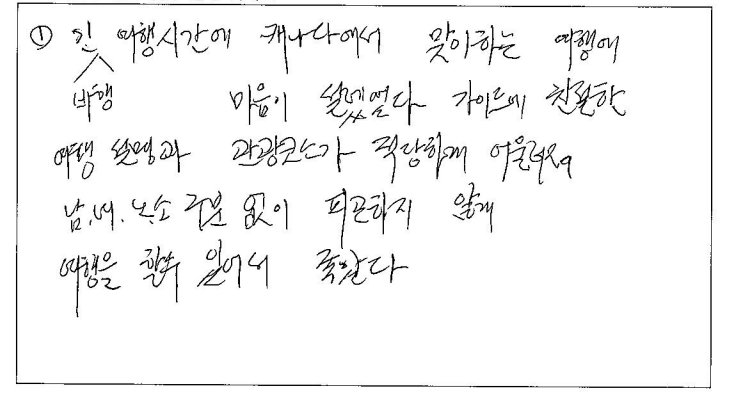 ① 긴 여행시간에 캐나다에서 맞이하는 여행에
비행 마음이 설레였었다 가이드에 친절한
여행 설명과 관광코스가 적당하게 어울려져
남.녀.노.소 구분 없이 피곤하지 않게
여행을 할수 있어서 좋았다